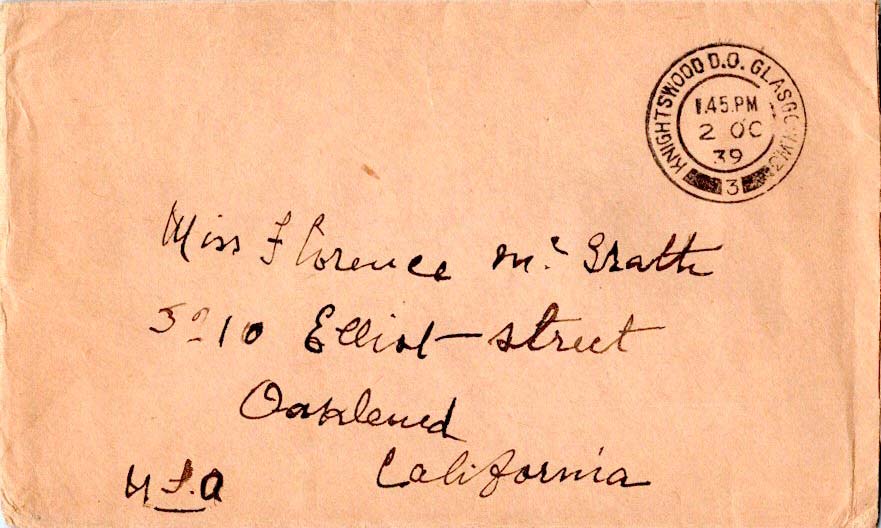 KNIGHTSWOOD D.O. GLASGOW W3
1.45.PM
2 OC
39
3
Miss Florence Mc Grath
5210 Elliot street
Oaklend
California
U.S.A